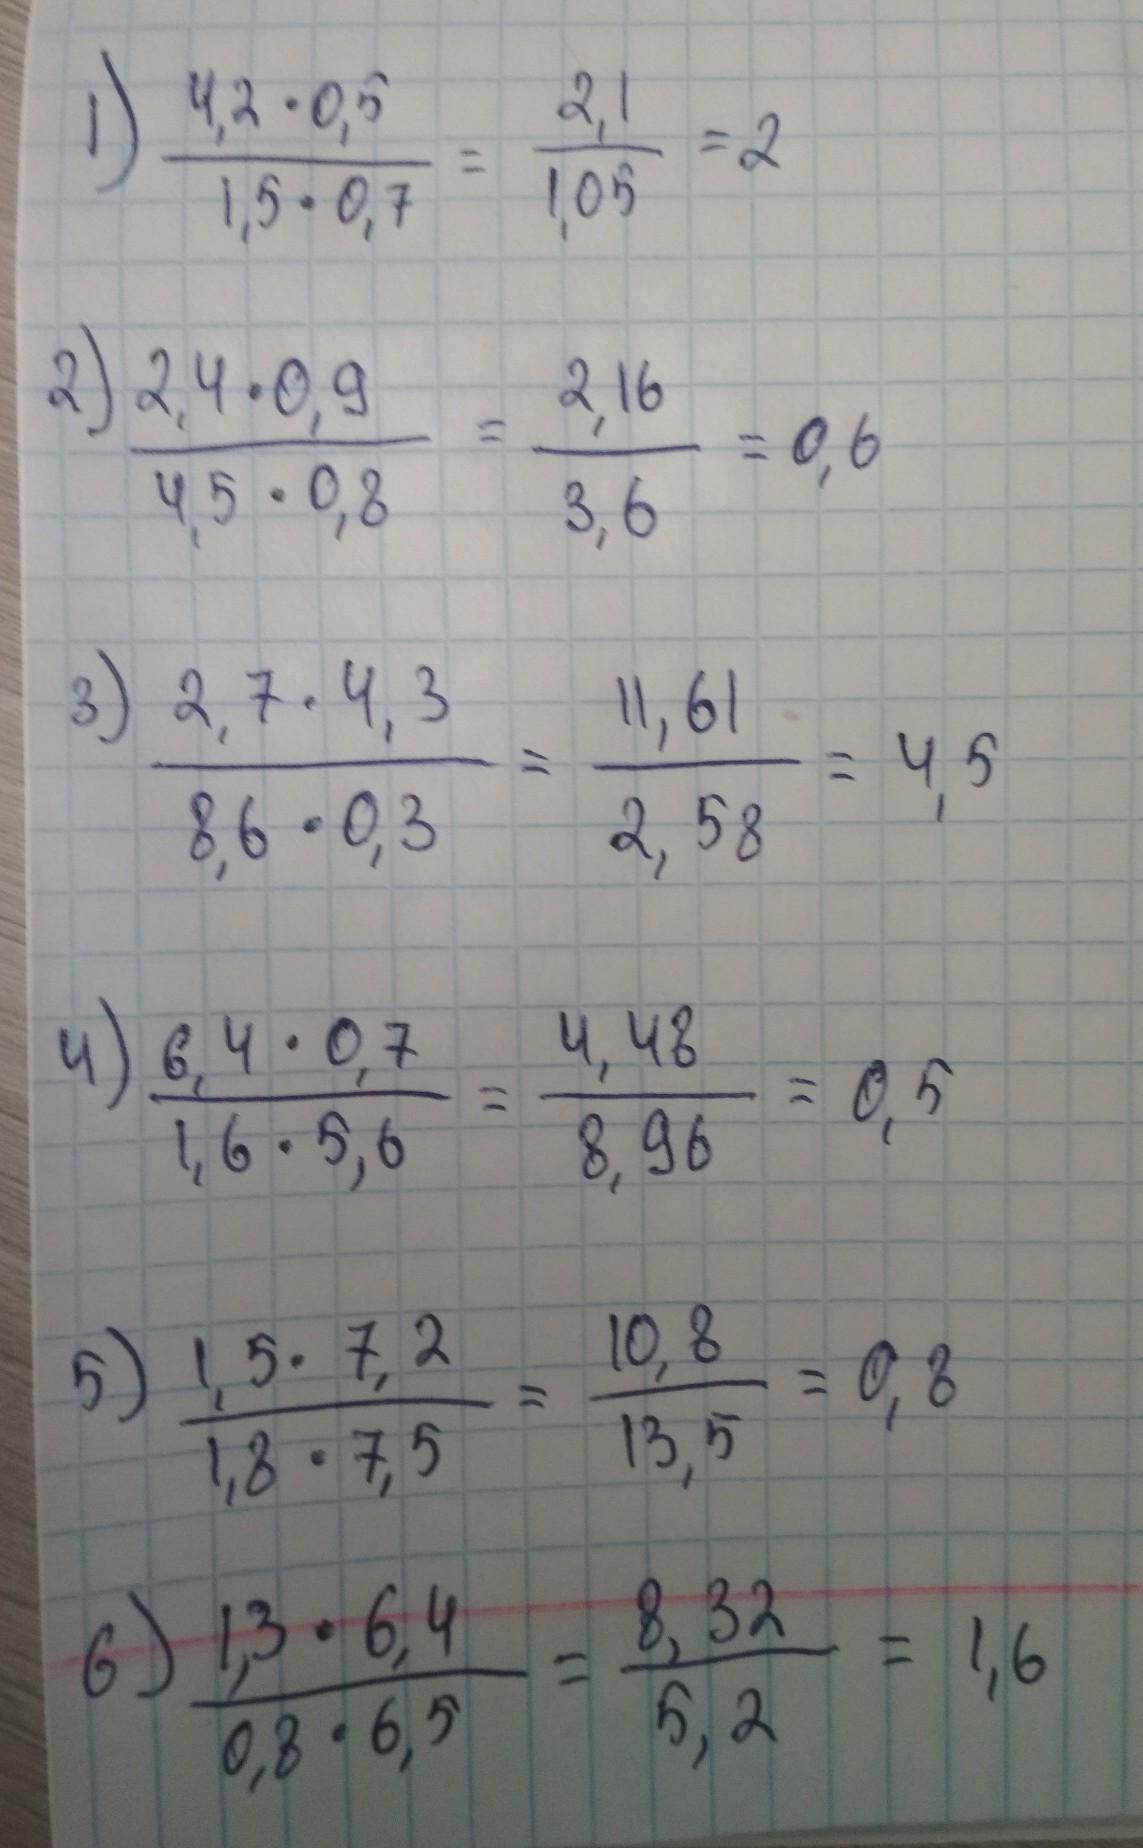 1) 4,2 · 0,5 / 1,5 · 0,7 = 2,1 / 1,05 = 2
2) 2,4 · 0,9 / 4,5 · 0,8 = 2,16 / 3,6 = 0,6
3) 2,7 · 4,3 / 8,6 · 0,3 = 11,61 / 2,58 = 4,5
4) 6,4 · 0,7 / 1,6 · 5,6 = 4,48 / 8,96 = 0,5
5) 1,5 · 7,2 / 1,8 · 7,5 = 10,8 / 13,5 = 0,8
6) 1,3 · 6,4 / 0,8 · 6,5 = 8,32 / 5,2 = 1,6